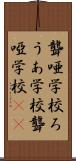 聾唖学校ろ
うあ学校聾
啞学校